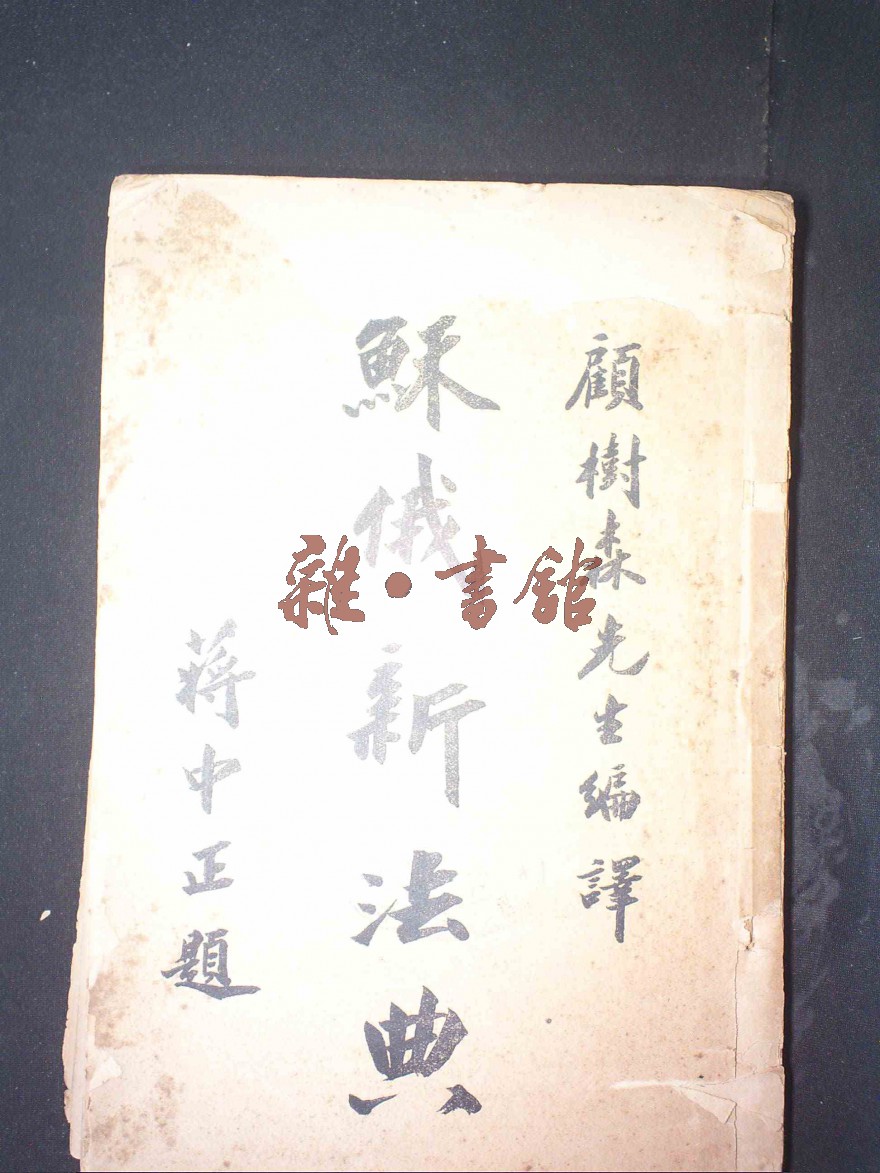 顧樹森先生編譯
穌俄新法典
蔣中正題
雜·書館